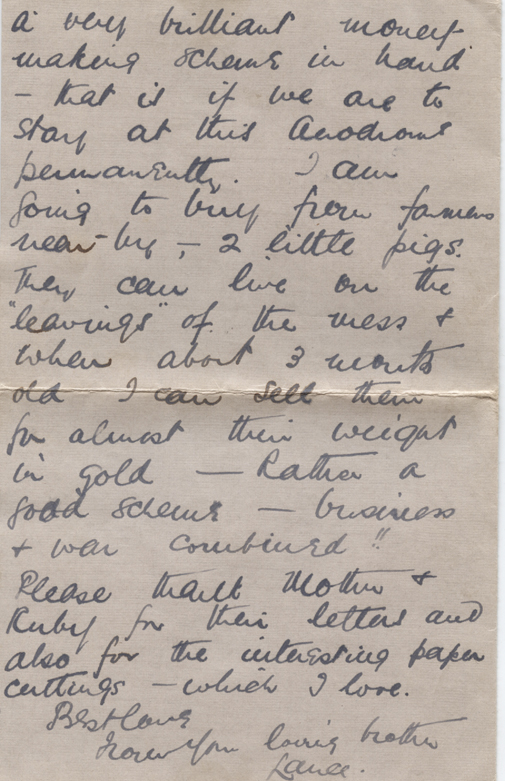 a very brilliant money
making scheme in hand
- that is if we are to
stay at this Aerodrome
permanently. I am
going to buy from farmers
near-by, - 2 little pigs.
They can live on the
"leavings" of the mess &
when about 3 months
old I can sell them
for almost their weight
in gold — Rather a
good scheme — business
& war combined!!
Please thank Mother &
Ruby for their letters and
also for the interesting paper
cuttings - which I love.
Best love
from Your loving brother
Lance.